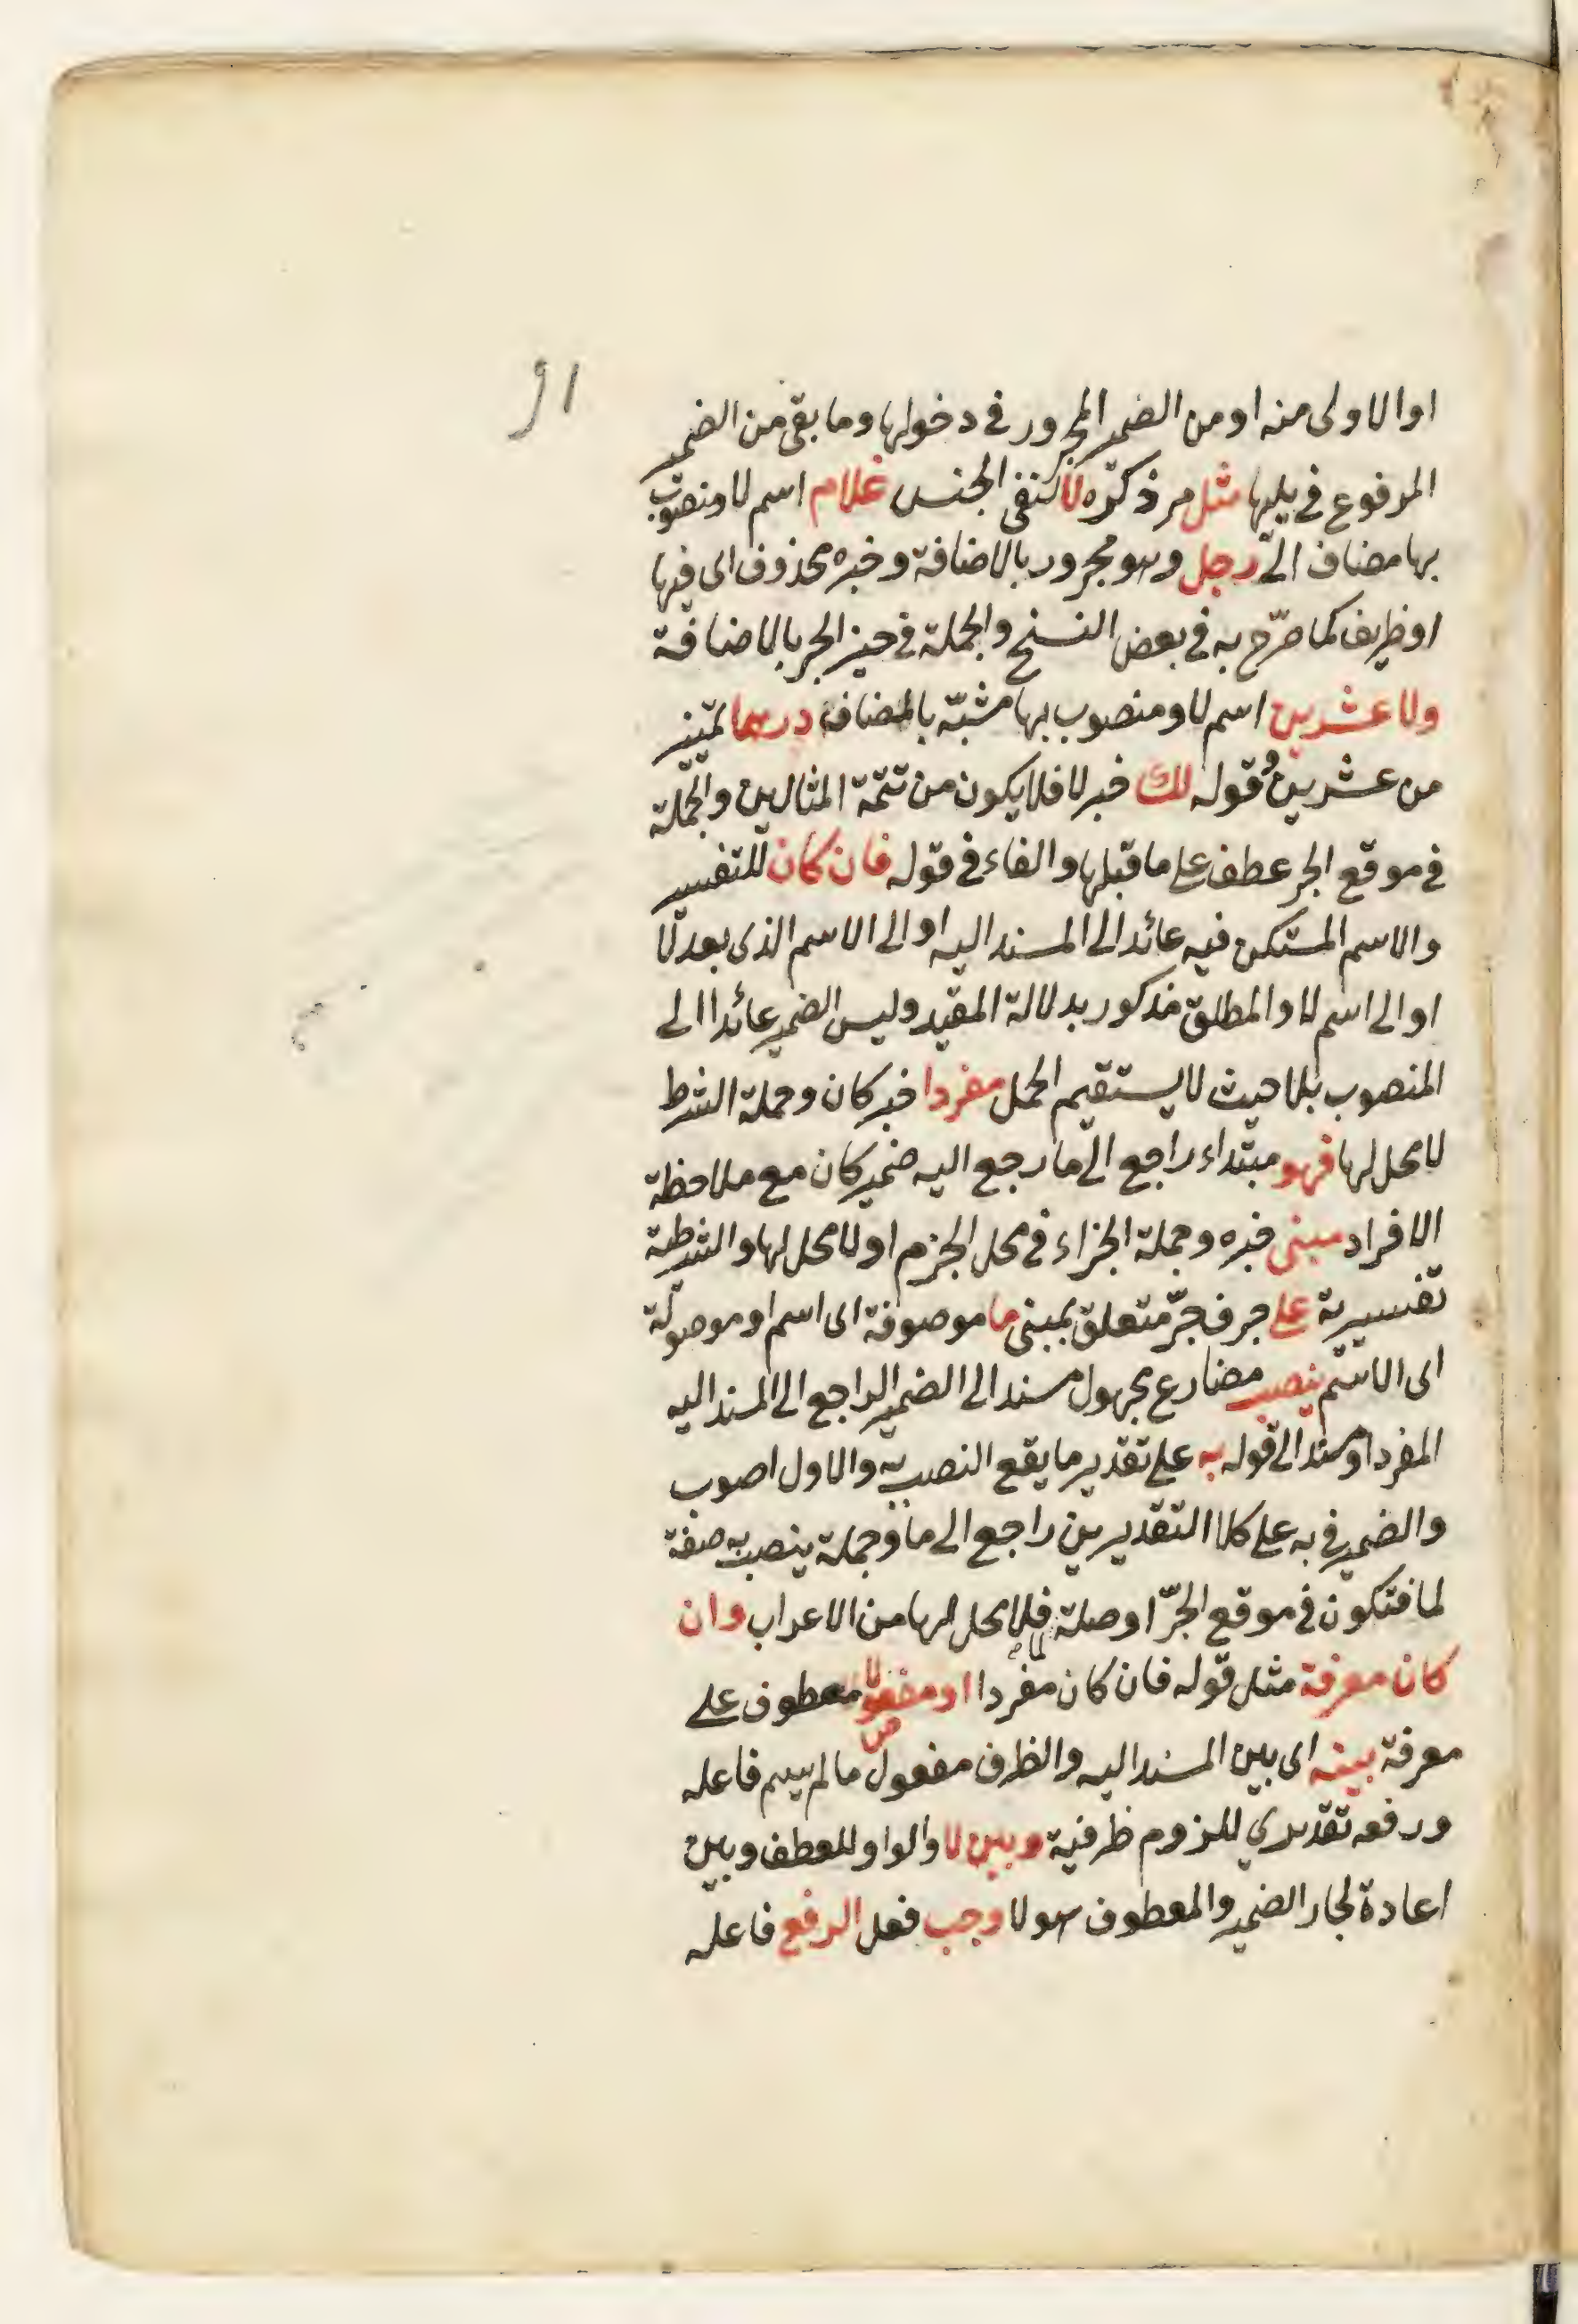 ٩١
او الاولى منه او من الضمير المجرور في دخولها وما بقي من الضمير
المرفوع في يليها مثل مر ذكره لا لنفي الجنس غلام اسم لا ومنصوب
بها مضاف الى رجل وهو مجرور بالاضافة وخبره محذوف اى فيها
او ظريف كما صرّح به في بعض النسخ والجملة في حيز الجر بالاضافة
ولا عشرين اسم لا ومنصوب بها مشبّه بالمضاف درهما تمييز
من عشرين وقوله لك خبر لا فلا يكون من تتمّة المثالين والجملة
في موقع الجر عطف على ما قبلها والفاء في قوله فان كان للتفسير
والاسم المستكن فيه عائد الى المسند اليه او الى الاسم الذى بعد لا
او الى اسم لا والمطلق مذكور بدلالة المقيد وليس الضمير عائدا الى
المنصوب بلا حيث لا يستقيم الحمل مفردا خبر كان وجملة الشرط
لا محل لها فهو مبتداء راجع الى ما رجع اليه ضمير كان مع ملاحظة
الافراد مبنى خبره وجملة الجزاء في محل الجزم او لا محل لها والشرطية
تفسيرية على حرف جرّ متعلق بمبنى ما موصوفة اى اسم او موصولة
اى الاسم ينصب مضارع مجهول مسند الى الضمير الراجع الى المسند اليه
المفرد او مسند الى قوله به على تقدير ما يقع النصب به والاول اصوب
والضمير في به على كلا التقديرين راجع الى ما وجملة ينصب به صفة
لما فتكون في موقع الجرّ او صلة لما فلا محل لها من الاعراب وان
كان معرفة مثل قوله فان كان مفردا او مفصولا معطوف على
معرفة بينه اى بين المسند اليه والظرف مفعول ما لم يسم فاعله
ورفعه تقديري للزوم ظرفية وبين لا والواو للعطف وبين
اعادة لجار الضمير والمعطوف هو لا وجب فعل الرفع فاعله